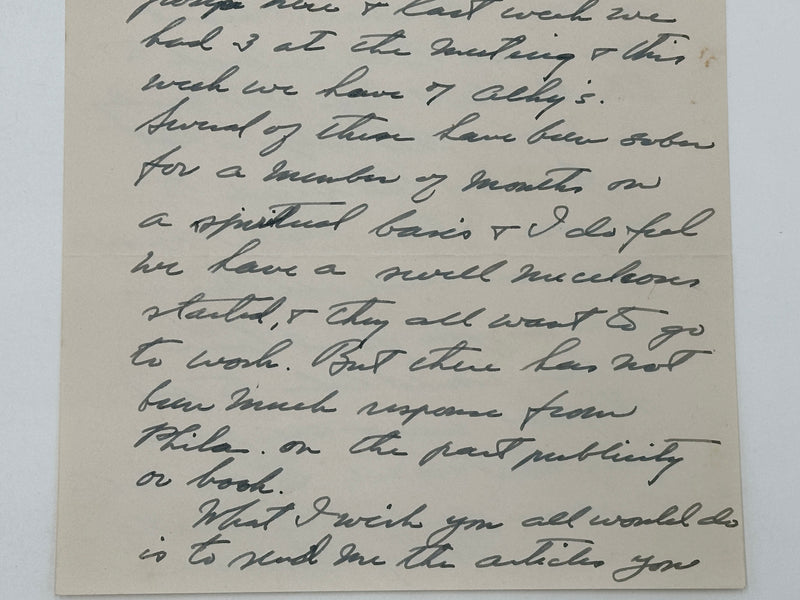 here & last week we
had 3 at the meeting & this
week we have 7 Alky's.
Several of these have been sober
for a number of months on
a spiritual basis & I do feel
we have a swell nuculous
started, & they all want to go
to work. But there has not
been much response from
Phila. on the past publicity
or book.
What I wish you all would do
is to send me the articles you